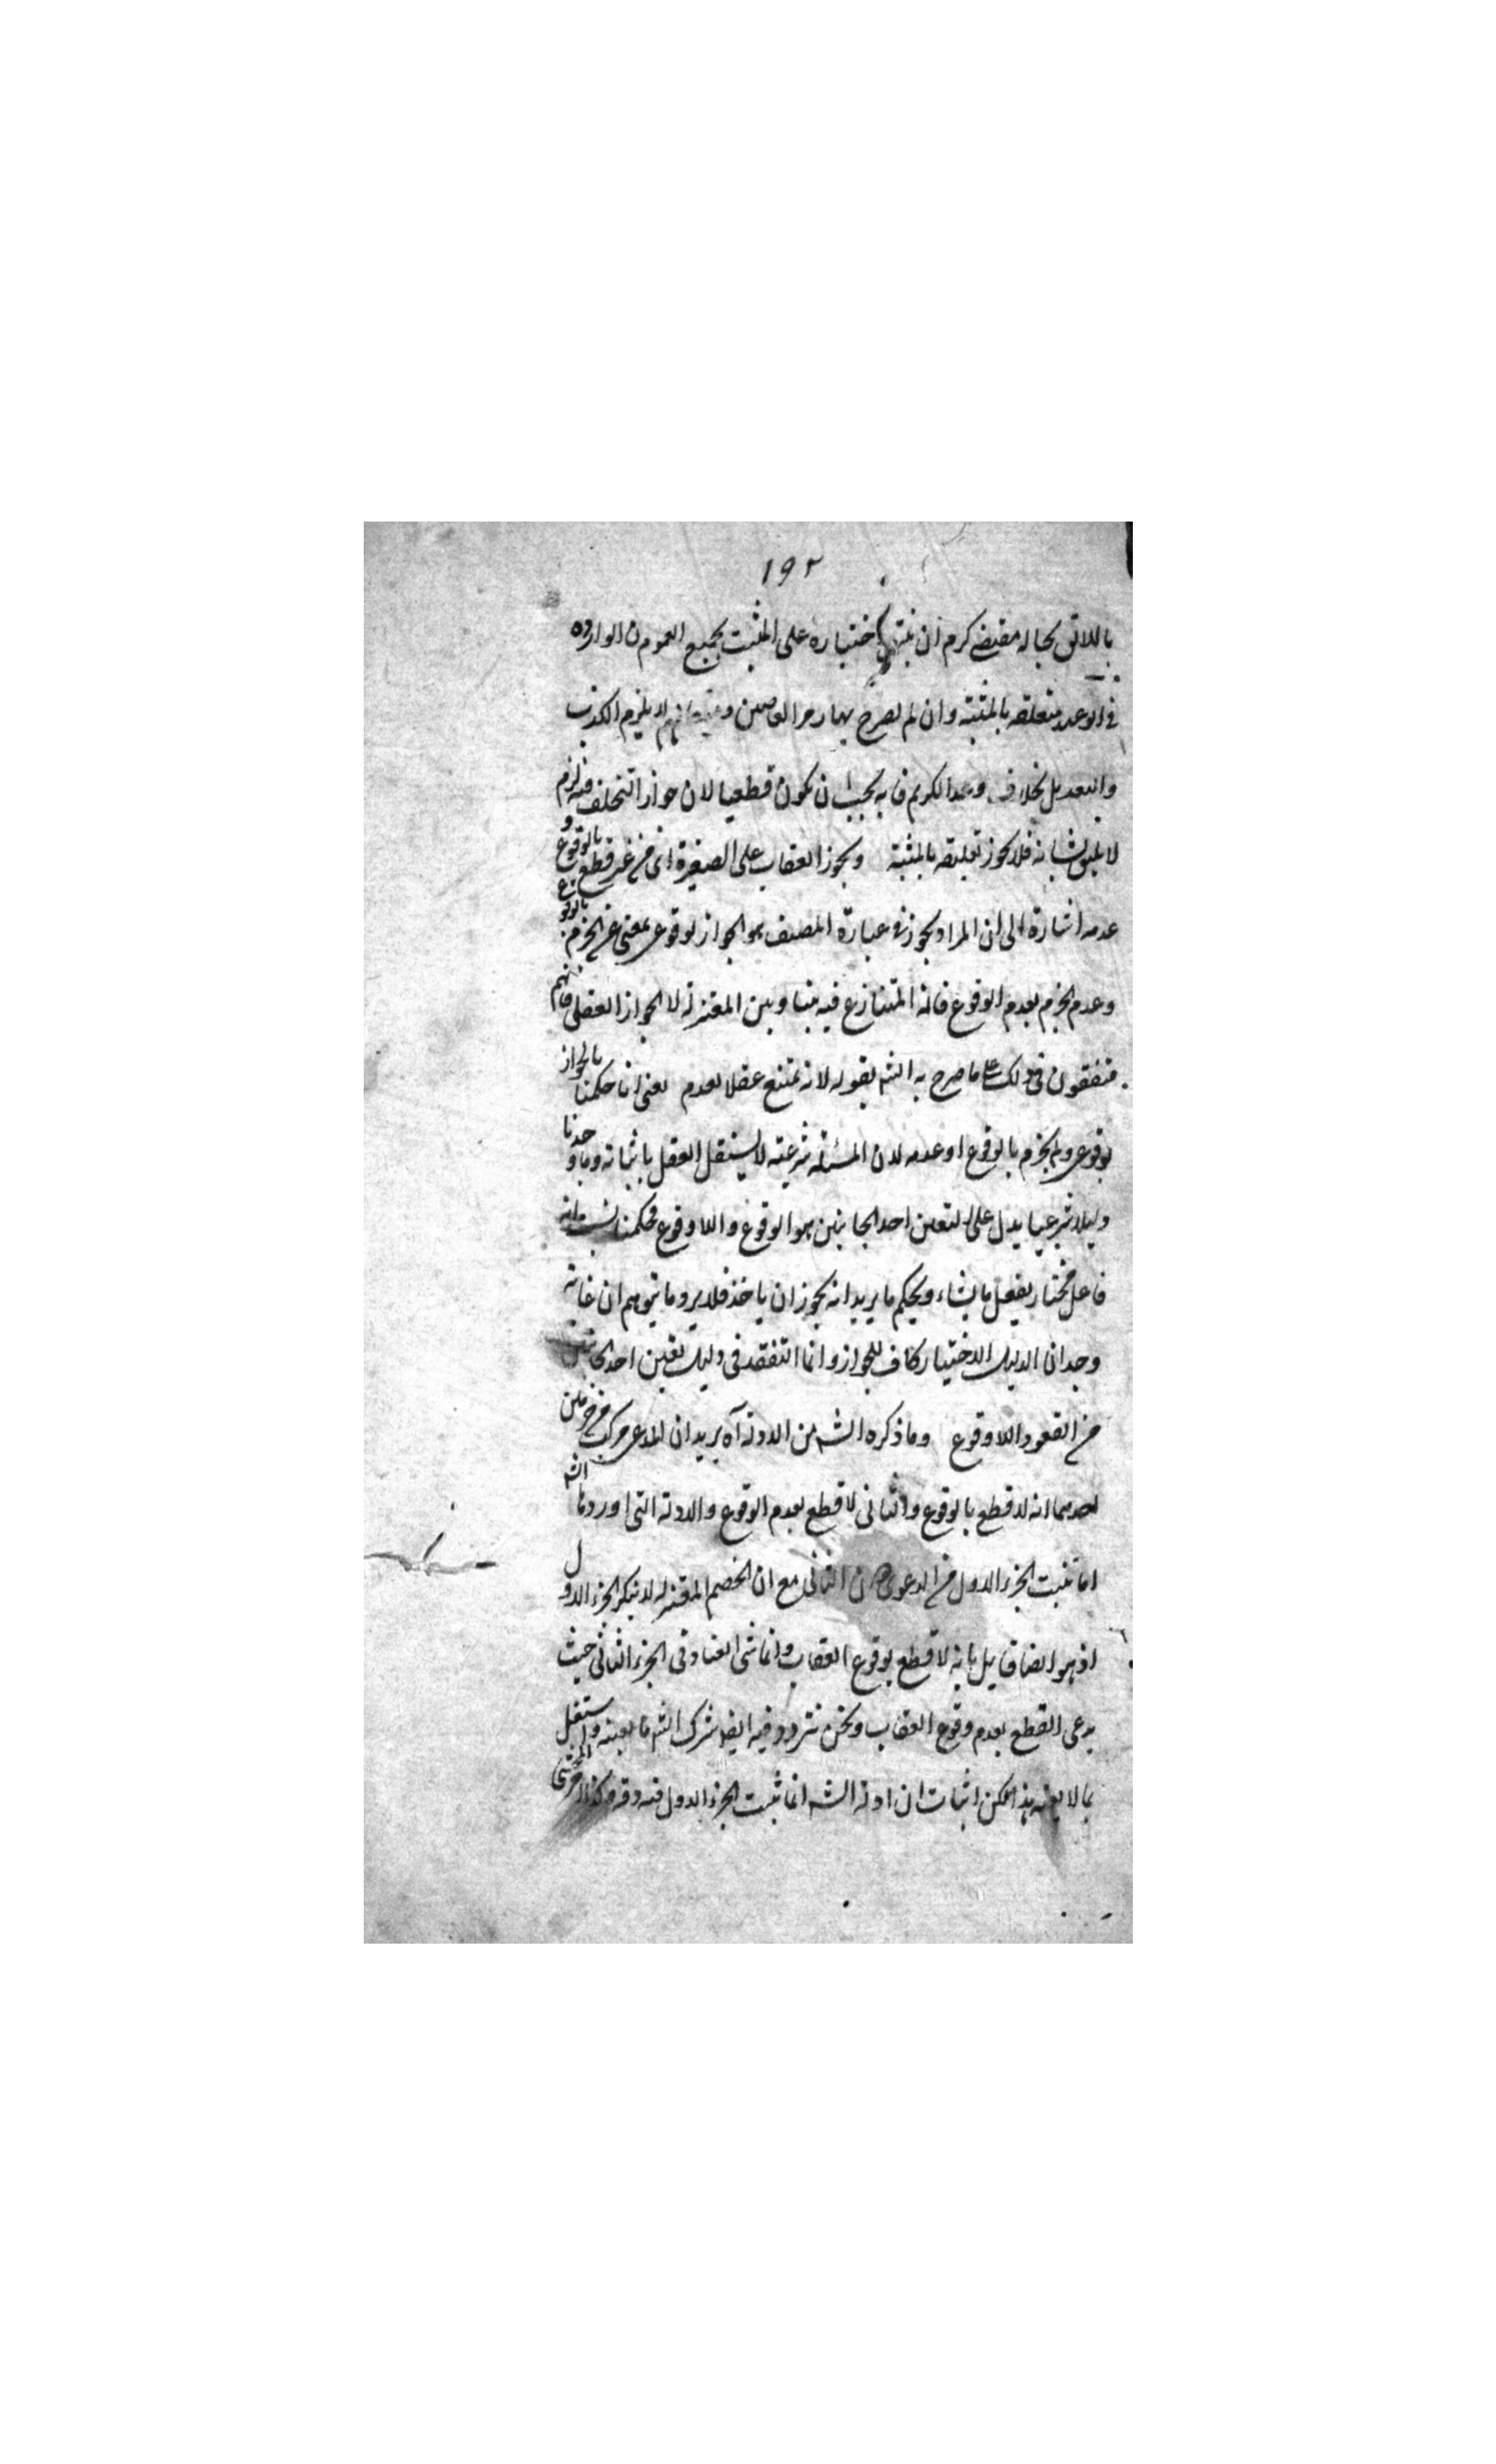 ١٩٢
باللائق بحاله مقتضى كرمه ان يبتنى اختياره على المشية بجميع العمومات الوارده
فى الوعد متعلقه بالمشية وان لم يصرح بها زجرا للعاصين لا يلزم الكذب
والتبديل بخلاف وعد الكريم فانه يجب ان يكون قطعيا لان جواز التخلف فيه لزم
لا يليق بشانه فلا يجوز تعليقه بالمشية ويجوز العقاب على الصغيرة اى من غير قطع بالوقوع و
عدمه اشارة الى ان المراد بيجوز فى عبارة المصنف هو الجواز لوقوعى بمعنى عدم الجزم بالوقوع
وعدم الجزم بعدم الوقوع فانه المتنازع فيه بيننا وبين المعتزلة لا الجواز العقلى فانهم
متفقون فى ذلك على ما صرح به الشه بقوله لا انه يمتنع عقلا بعدم يعنى انا حكمنا بالجواز
لوقوعى ولم نجزم بالوقوع او عدمه لان المسئله شرعيته لا يستقل العقل باثباته وما وجدنا
دليلا شرعيا يدل على التعين احد الجانبين هو الوقوع واللا وقوع فحكمنا بانه
فاعل مختار يفعل ما يشاء ويحكم ما يريد انه يجوز ان ياخذ فلا يرد ما يتوهم ان غاية
وجدان الدليل الاختيار كاف للجواز وانما التفقد فى دليل تعين احد الجانبين
من القعود اللا وقوع وما ذكره الشه من الادلة آه يريد ان المدعى مركب من جزئين
احدهما انه لا قطع بالوقوع والثانى لا قطع بعدم الوقوع والادلة التى اوردها الشه
انما تثبت الجزء الاول من الدعوى دون الثانى مع ان الخصم المعتزله لا ينكر الجزء الاول
اذ هو ايضا قايل بانه لا قطع بوقوع العقاب وانما شى العناد فى الجزء الثانى حيث
يدعى القطع بعدم وقوع العقاب ونحن نتردد فيه ايضا فترك الشه ما يعينه واستقل
بما لا يعنيه هذا لكن اثبات ان ادلة الشه انما تثبت الجزء الاول فيه دقه وكذا